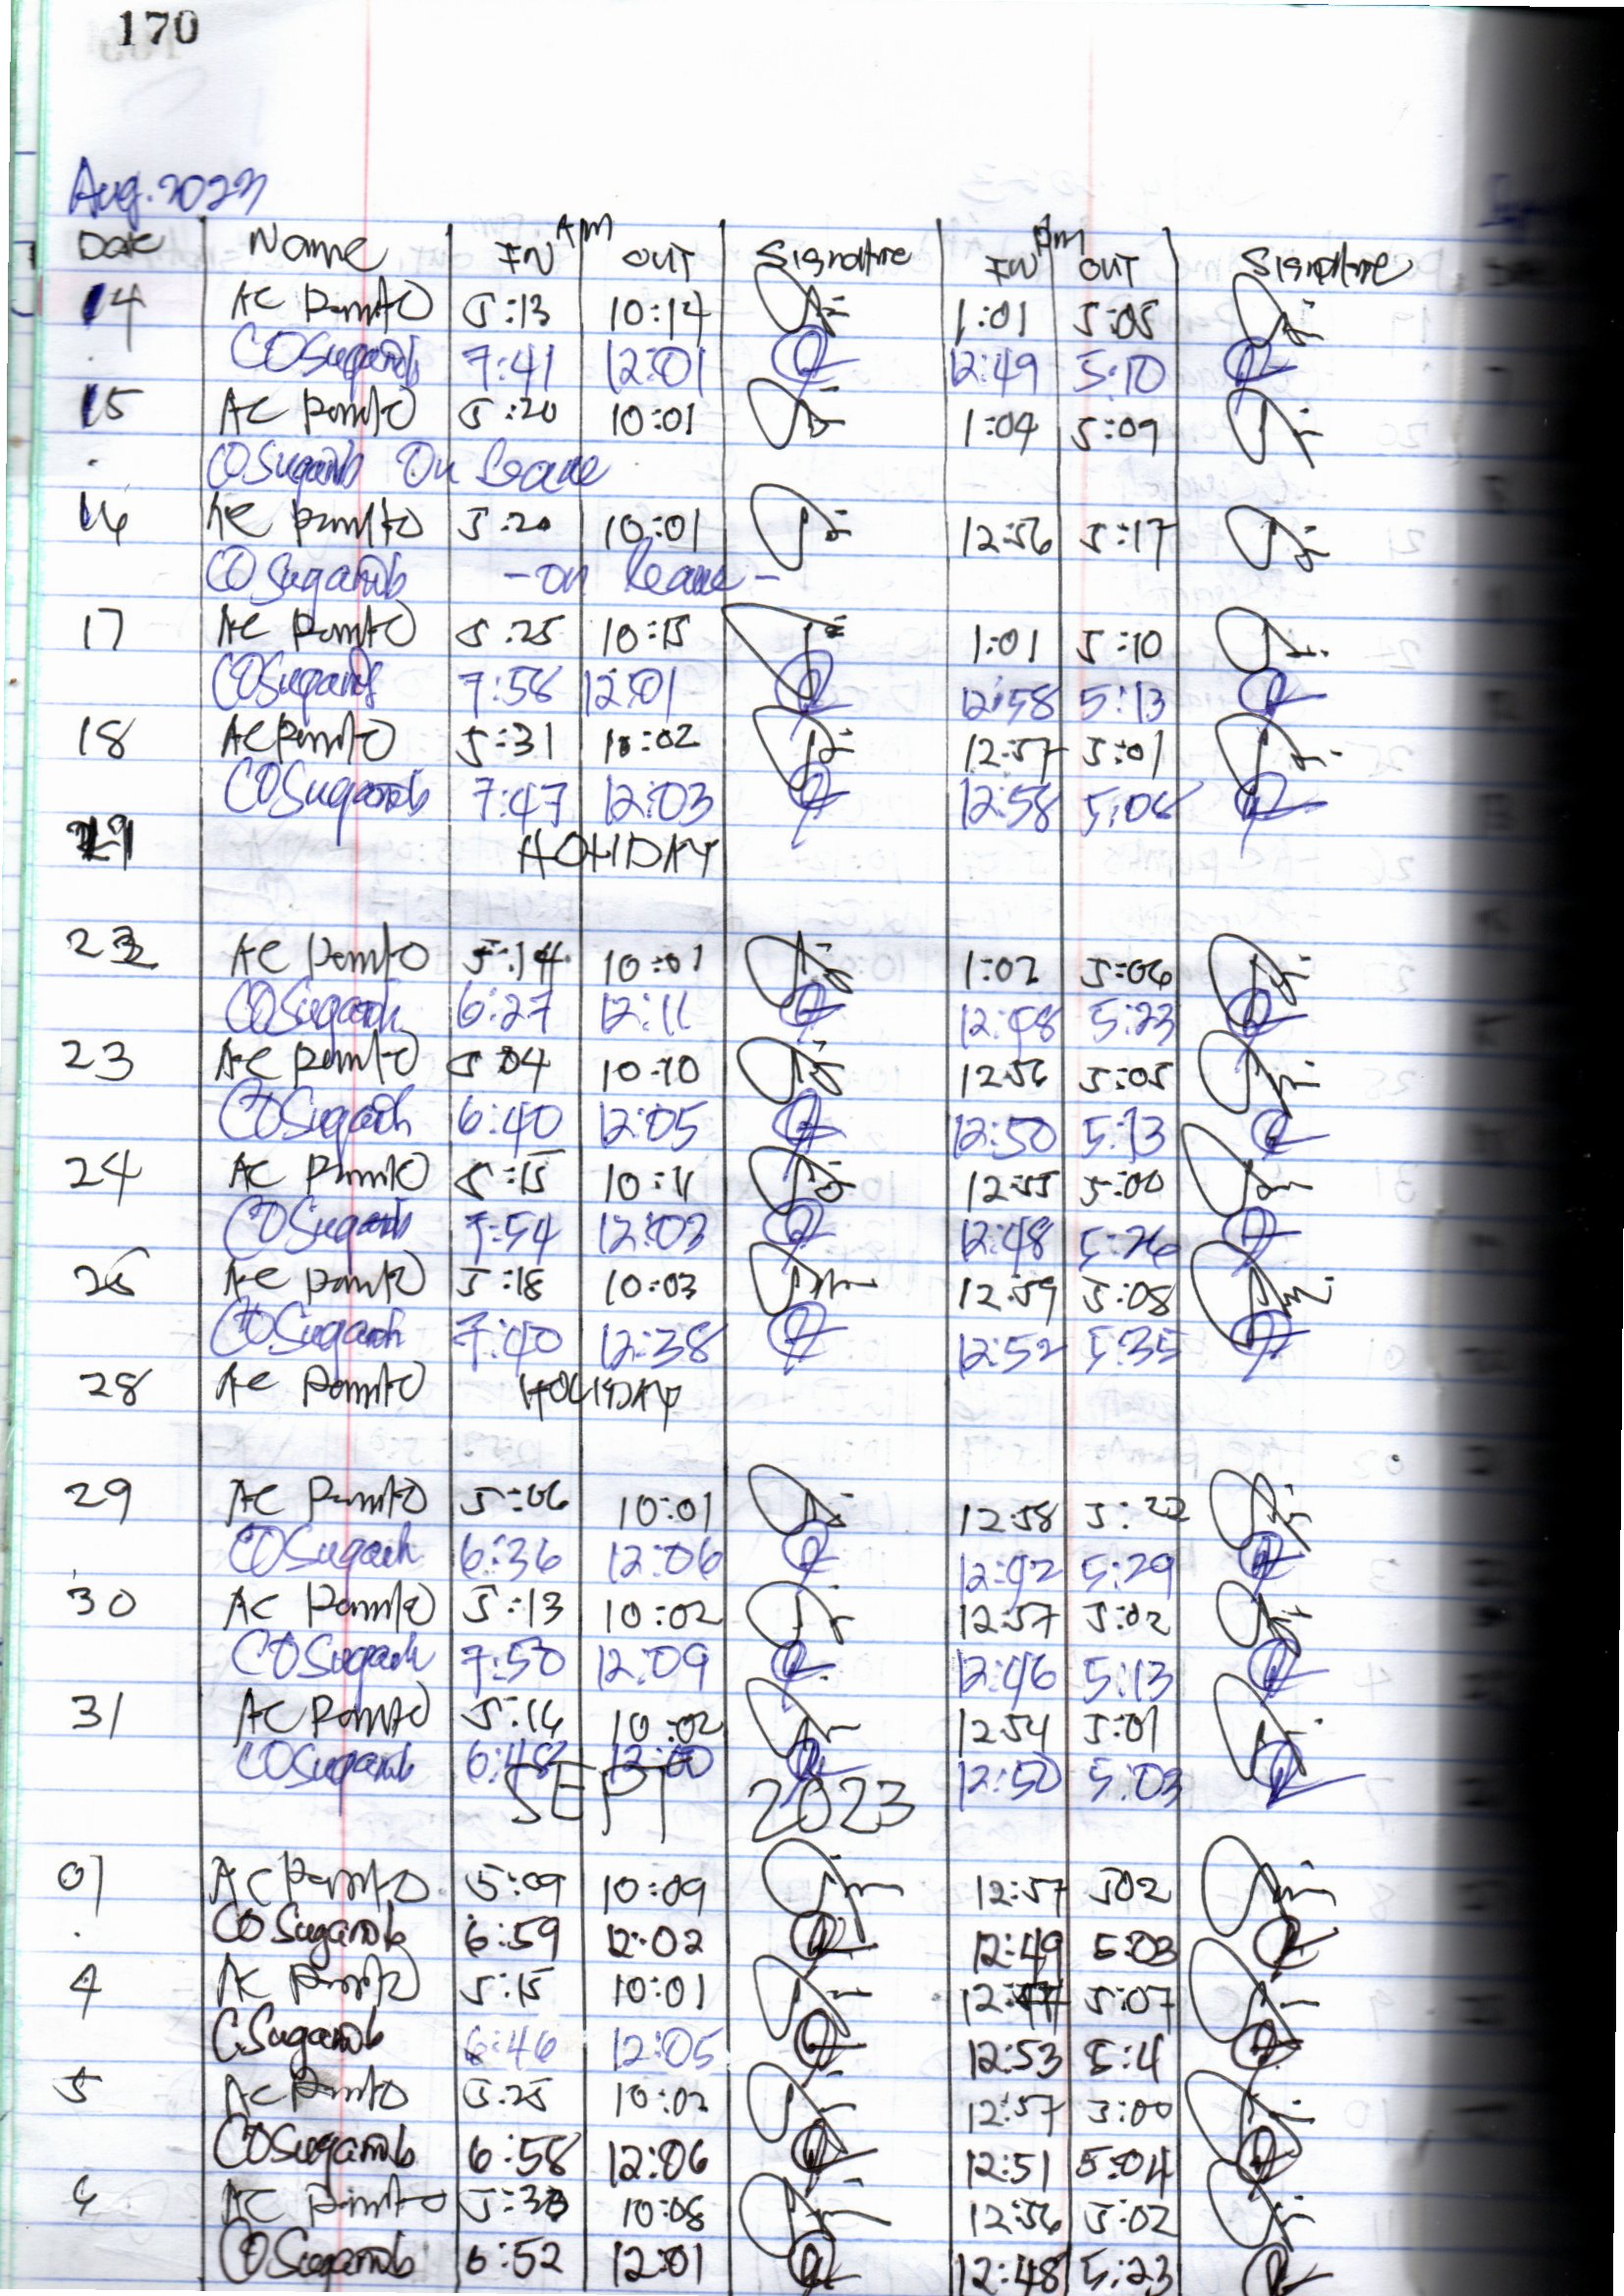 170
Aug. 2023
AM Pm
Date Name IN OUT Signature IN OUT Signature
14 AC Pamito 5:13 10:14 1:01 5:05
COSuganob 7:41 12:01 12:49 5:10
15 AC Pamito 5:20 10:01 1:04 5:09
COSuganob On leave
16 AC Pamito 5:20 10:01 12:56 5:17
COSuganob - on leave -
17 AC Pamito 5:25 10:15 1:01 5:10
COSuganob 7:58 12:01 12:58 5:13
18 AC Pamito 5:31 10:02 12:57 5:01
COSuganob 7:47 12:03 12:58 5:06
21 HOLIDAY
22 AC Pamito 5:14 10:01 1:02 5:06
COSuganob 6:27 12:11 12:48 5:23
23 AC Pamito 5 04 10:10 12:56 5:05
COSuganob 6:40 12:05 12:50 5:13
24 AC Pamito 5:15 10:11 12:55 5:00
COSuganob 7:54 12:03 12:48 5:26
25 AC Pamito 5:18 10:03 12:59 5:08
COSuganob 7:40 12:38 12:52 5:35
28 AC Pamito HOLIDAY
29 AC Pamito 5:06 10:01 12:58 5:22
COSuganob 6:36 12:06 12:42 5:29
30 AC Pamito 5:13 10:02 12:57 5:02
COSuganob 7:50 12:09 12:46 5:13
31 AC Pamito 5:16 10:02 12:54 5:01
COSuganob 6:48 12:00 12:50 5:03
SEPT 2023
01 AC Pamito 5:09 10:09 12:57 502
COSuganob 6:59 12:02 12:49 5:03
4 AC Pamito 5:15 10:01 5:07
CSuganob 6:46 12:05 12:53 5:4
5 AC Pamito 5:25 10:02 12:57 5:00
COSuganob 6:58 12:06 12:51 5:04
6 AC Pamito 5:30 10:08 12:56 5:02
COSuganob 6:52 12:01 12:48 5:23